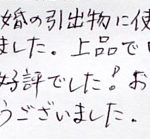 婚の引出物に使
ました。上品で
好評でした!お
うございました。